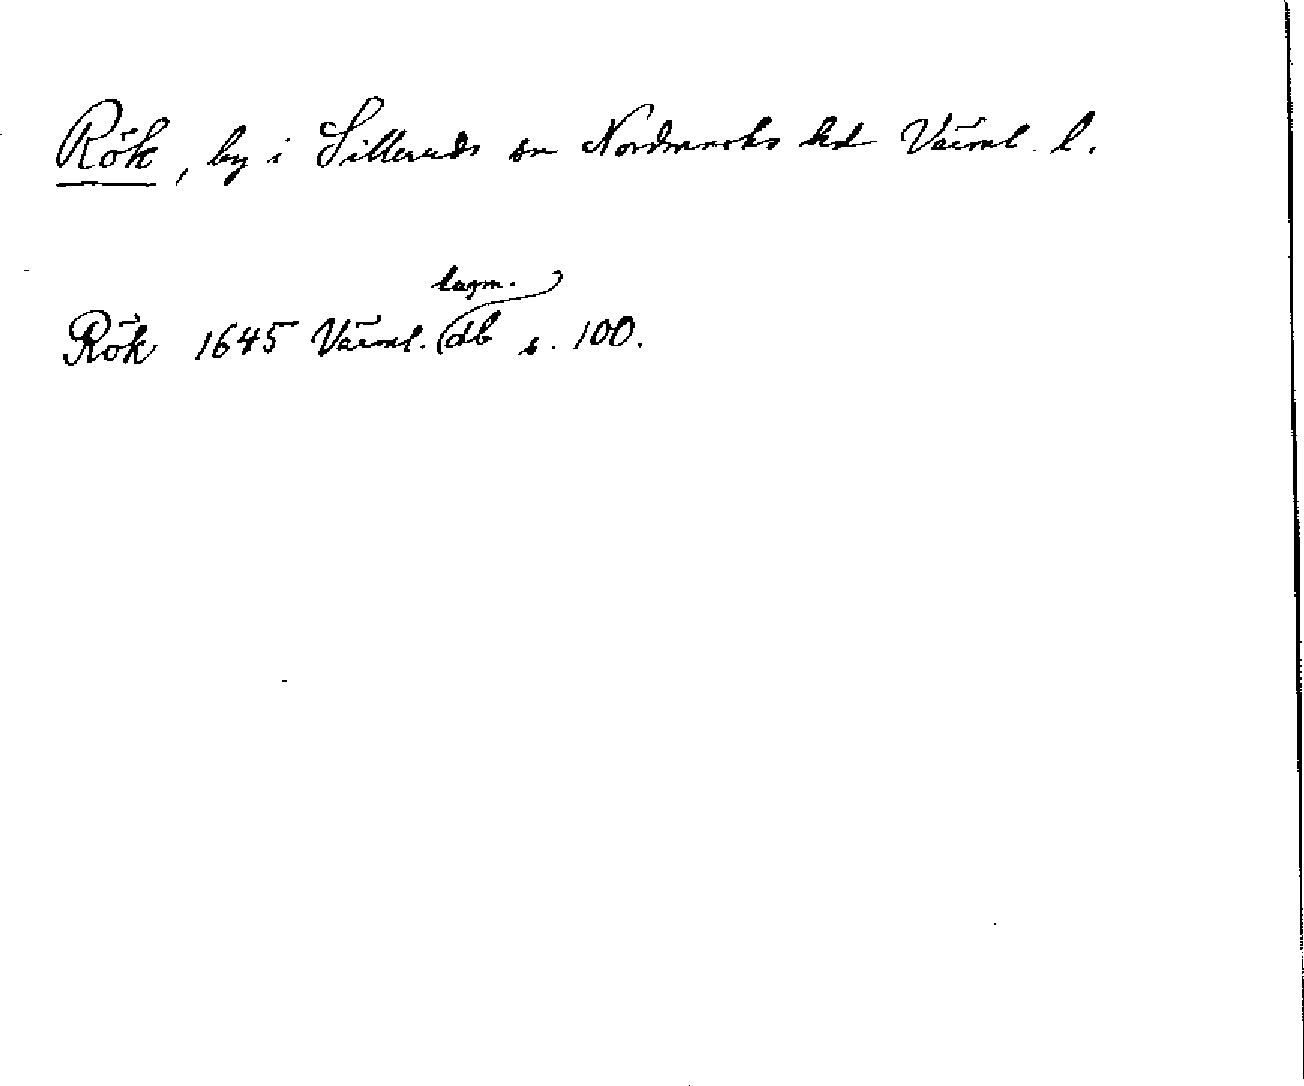 Rök, by i Silleruds sn Nordmarks hd Värml. l.
lagm.
Rök 1645 Värml. db s. 100.